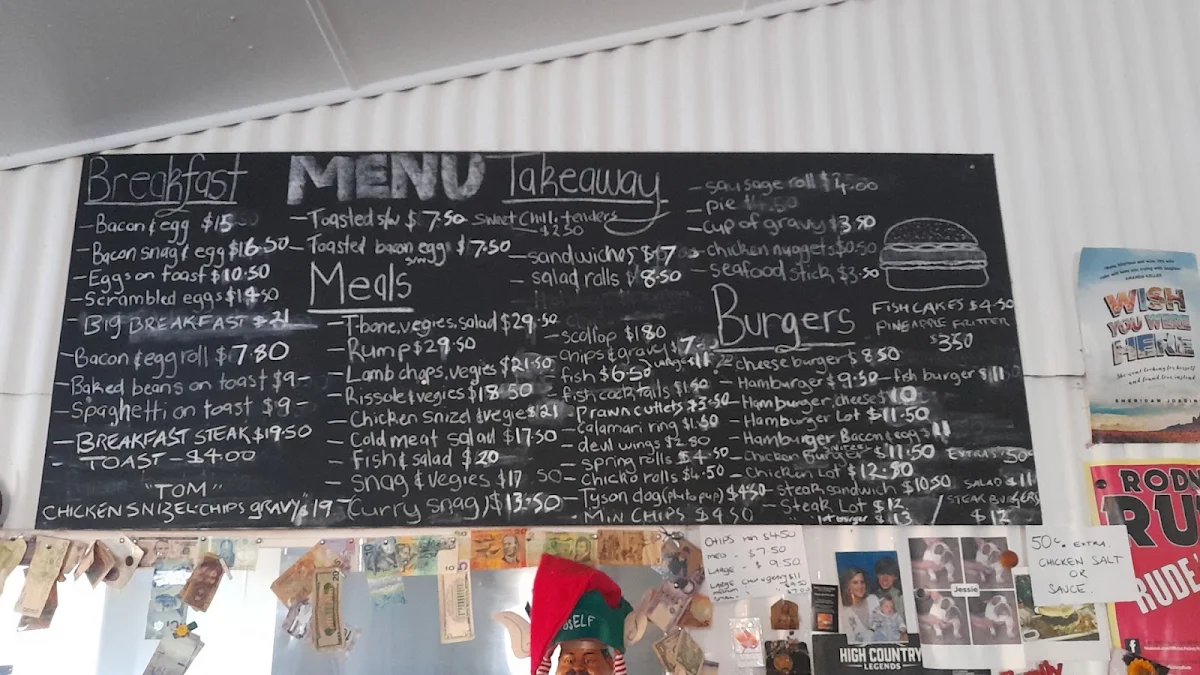 Breakfast
- Bacon & egg $15
- Bacon snag & egg $16.50
- Eggs on toast $10.50
- Scrambled eggs $14.50
- BIG BREAKFAST $21
- Bacon & egg roll $7.80
- Baked beans on toast $9-
- Spaghetti on toast $9-
- BREAKFAST STEAK $19.50
- TOAST - $4.00
"TOM"
CHICKEN SNIZEL CHIPS GRAVY $19
MENU
- Toasted s/w $7.50
- Toasted bacon egg $7.50
Meals
- T-bone, vegies, salad $29.50
- Rump $29.50
- Lamb chops, vegies $21.50
- Rissole & vegies $18.50
- Chicken Snizel & vegies $21
- Cold meat salad $17.50
- Fish & salad $20
- Snag & vegies $17.50
(Curry snag) $13.50
Takeaway
Sweet Chilli tenders
$2.50
- sandwiches $7
- salad rolls $8.50
- scollop $1.80
chips & gravy $7
fish $6.50
- fish cocktails $1.50
- Prawn cutlets $3.50
- calamari ring $1.50
devil wings $2.80
- spring rolls $4.50
- Chicko rolls $4.50
- Tyson dog (Pluto pup) $4.50
- MIN CHIPS $4.50
- sausage roll $4.00
- pie $4.50
- Cup of gravy $3.50
- chicken nuggets $0.50
- seafood stick $3.50
FISHCAKES $4.50
PINEAPPLE FRITTER
$3.50
Burgers
- cheese burger $8.50
- Hamburger $9.50 - fish burger $11
- Hamburger cheese $10
- Hamburger Lot $11.50
- Hamburger Bacon & egg $11
- Chicken Burger $11.50
- Chicken Lot $12.80
- Steak sandwich $10.50
- Steak Lot $12
EXTRAS .50c
SALAD $11
STEAK BURGERS
$12
WISH
YOU WERE
HERE
She went looking for herself
and found love instead
SHERIDAN
CHIPS MIN $4.50
MED - $7.50
LARGE - $9.50
50c. EXTRA
CHICKEN SALT
OR
SAUCE.
Jessie
HIGH COUNTRY
LEGENDS
RODN
RU
RUDE
Family